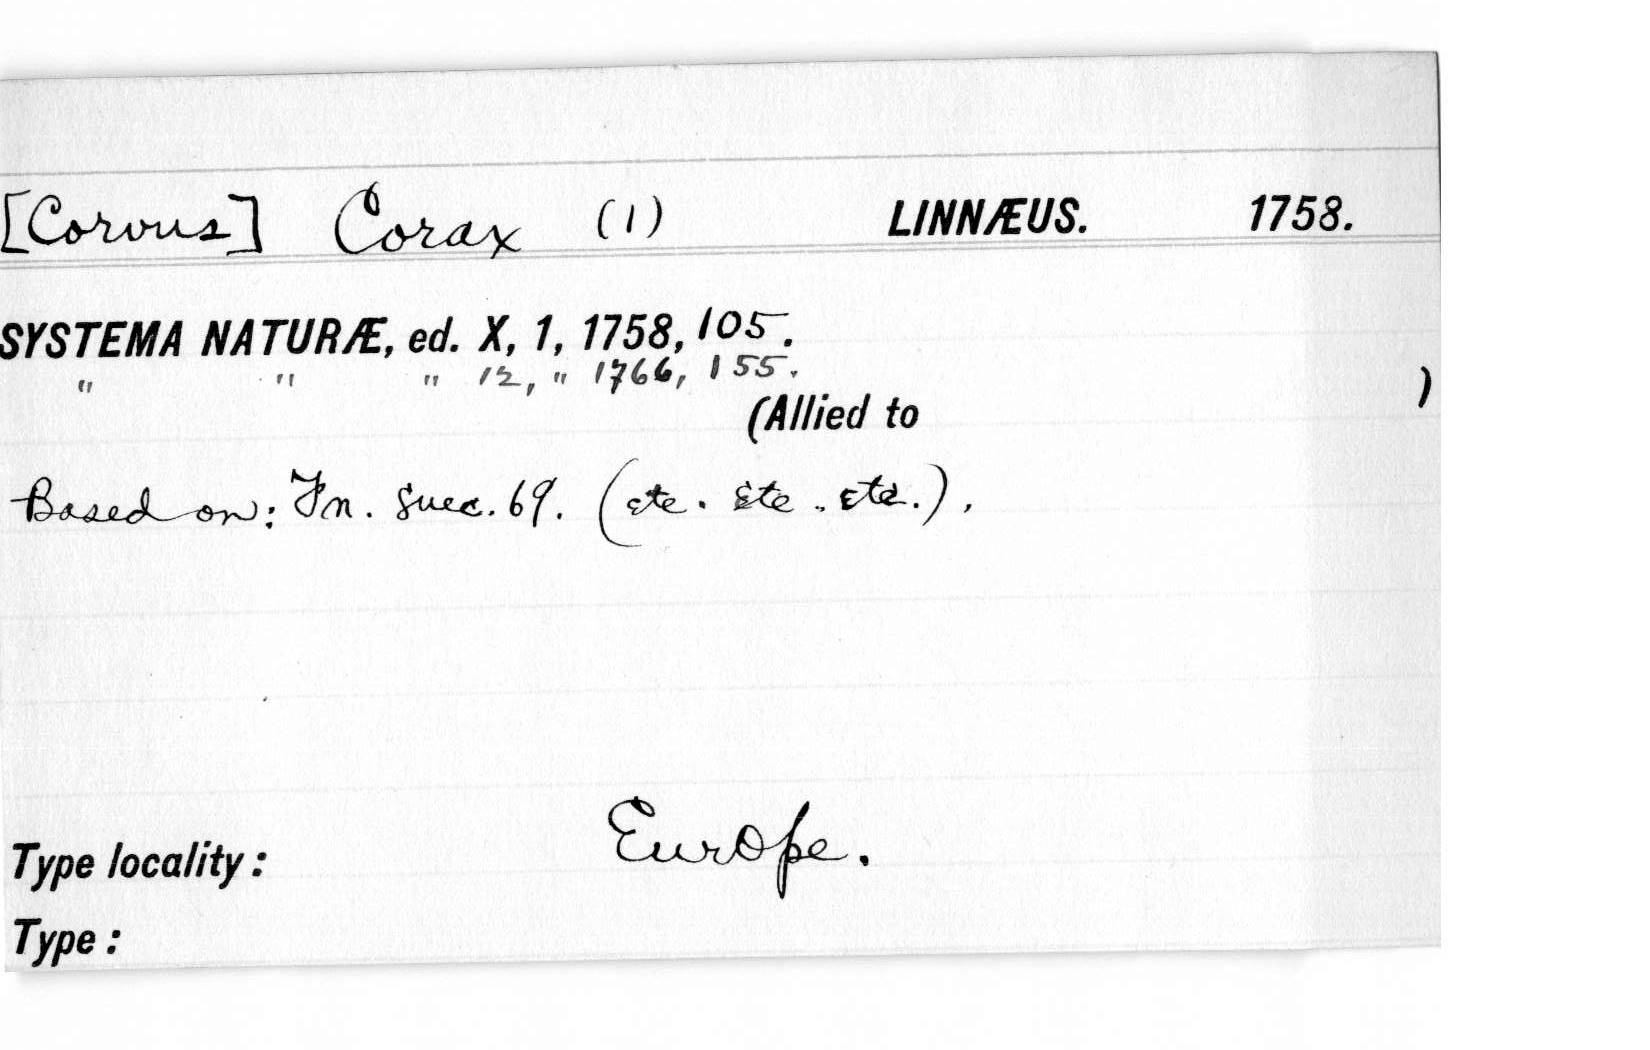 [Corvus] Corax (1) LINNÆUS. 1758.
SYSTEMA NATURÆ, ed. X, 1, 1758, 105.
" " " 12, " 1766, 155.
(Allied to )
Based on: Fn. Suec. 69. (etc. etc. etc.).
Type locality: Europe.
Type: